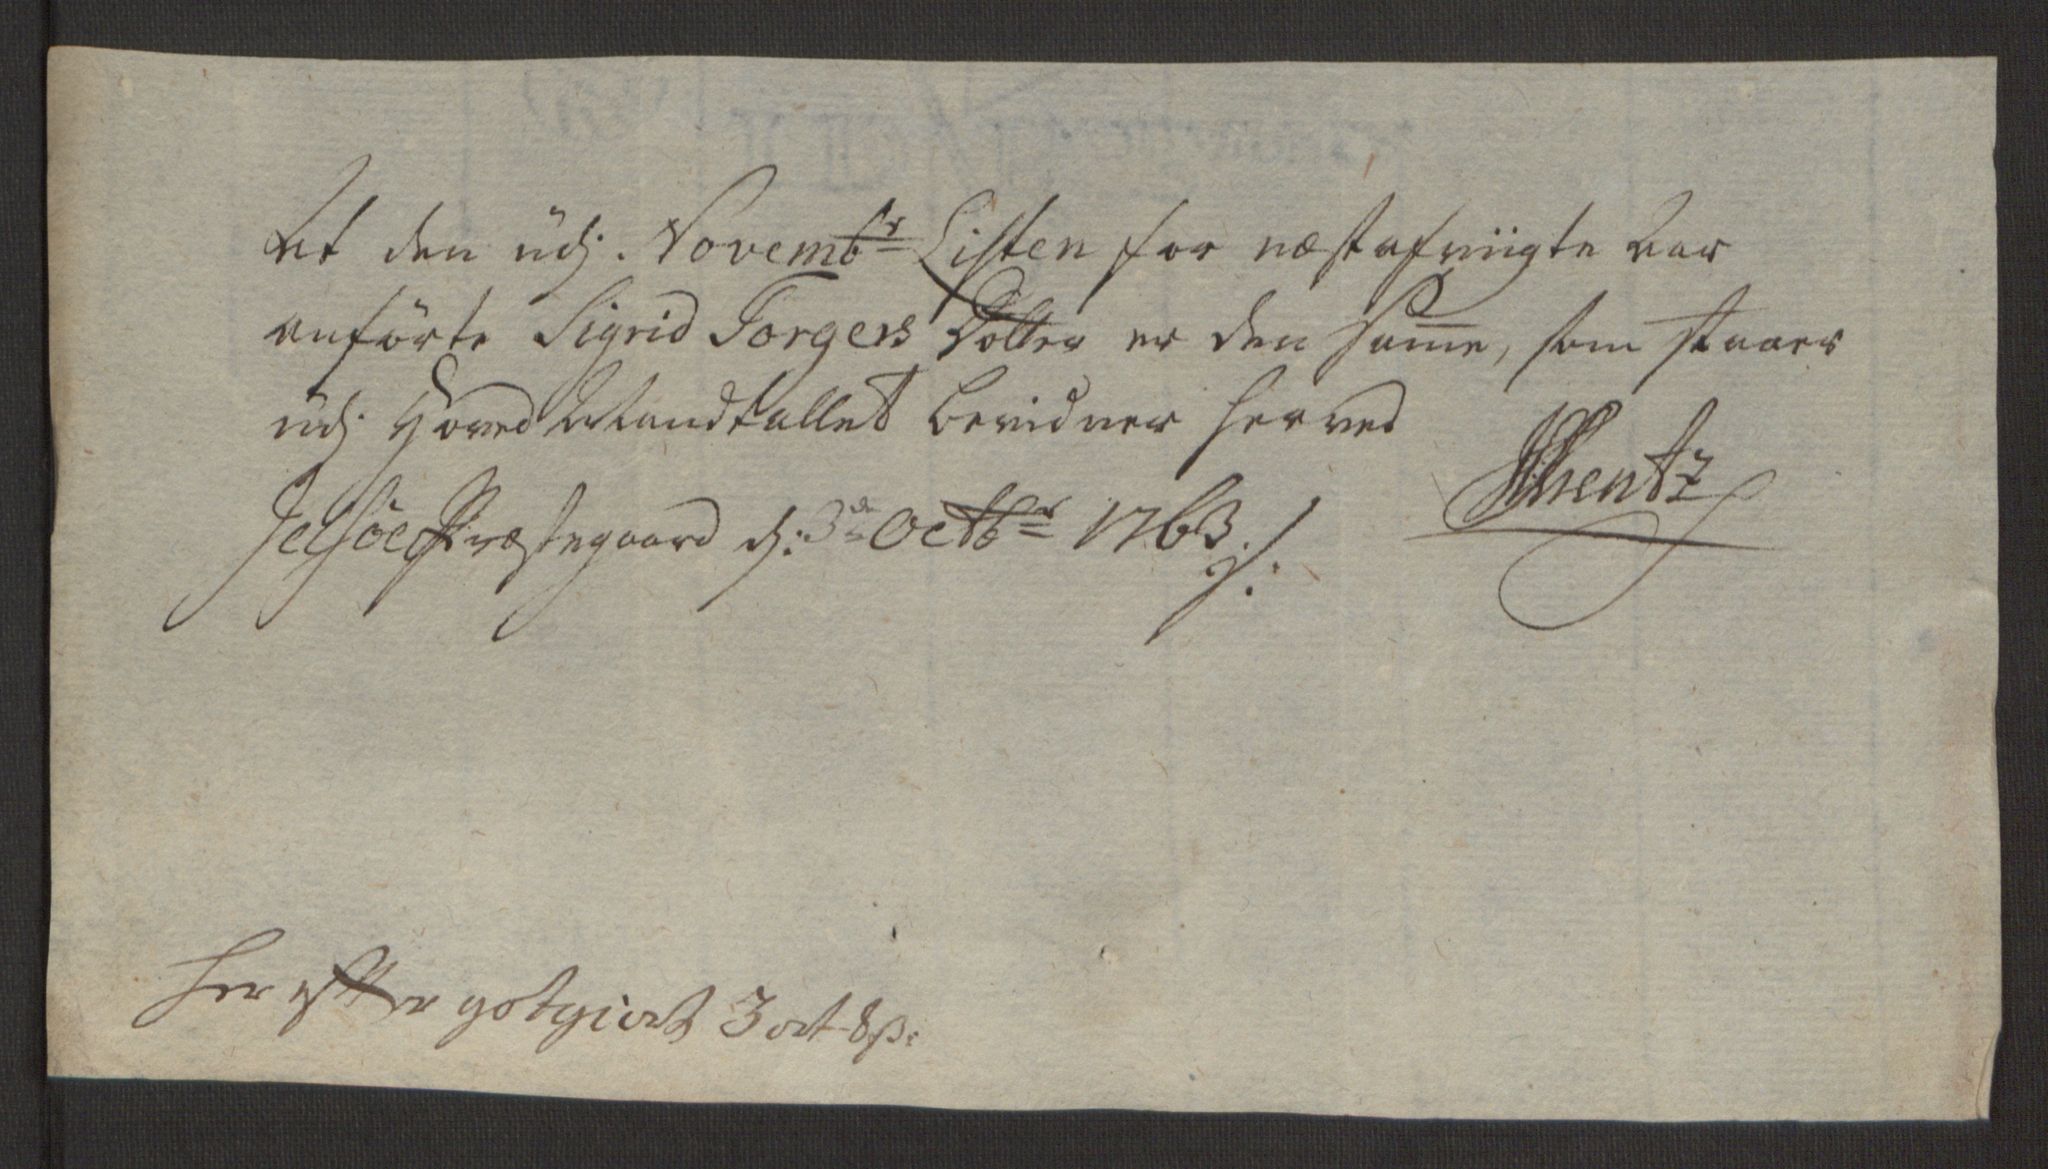 At den udj. Novembr Listen for næstafvigte Aar
anförte Sigrid Torgers Dotter er den samme, som staaer
udj Hoved Mandtallet bevidner herved
Jelsöe Præstegaard d: 3de Octbr 1763 ./.
Mentz
her efter gotgiort 3 ort 8 s: